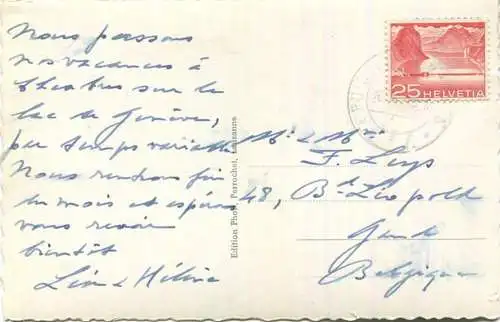 Nous passons
nos vacances à
Chexbres sur le
lac de Genève,
par temps variable
Nous rentrons fin
du mois et espérons
vous revoir
bientôt
Léon & Hélène
25 HELVETIA
Mr & Mme
F. Leys
48, Bd Léopold
Gand
Belgique
Edition Phot. Perrochet, Lausanne